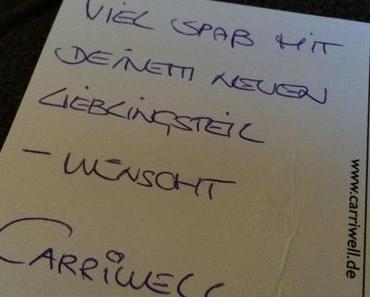 VIEL SPAß MIT
DEINEM NEUEN
LIEBLINGSTEIL
– WÜNSCHT
CARRIWELL
www.carriwell.de